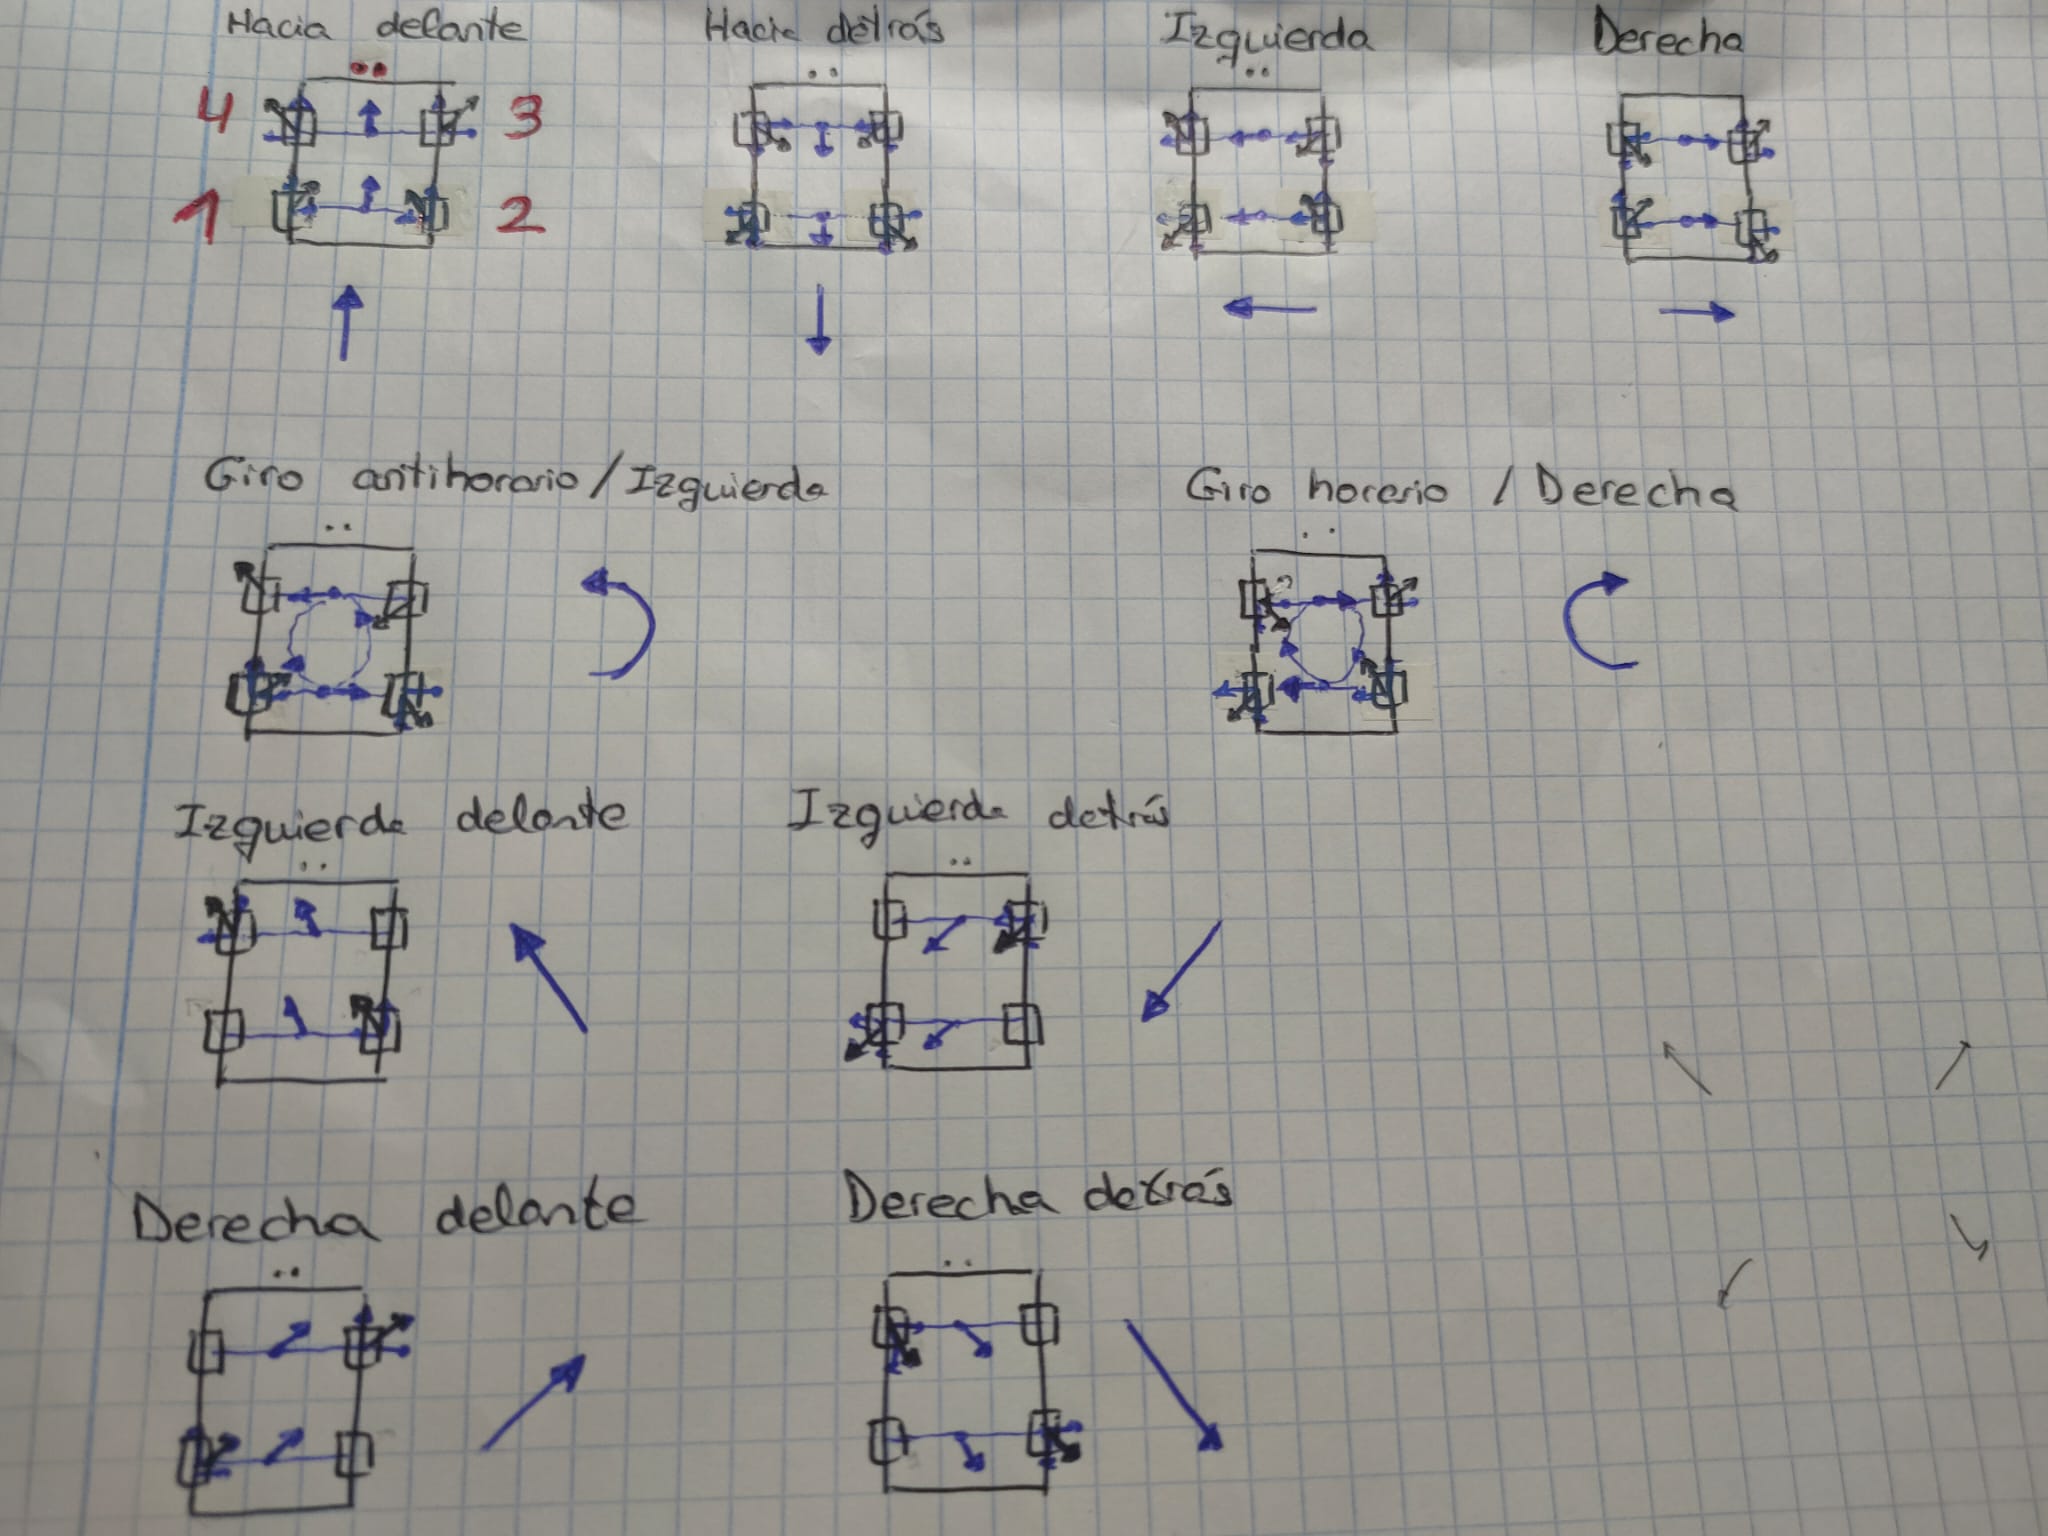 Hacia delante Hacia detrás Izquierda Derecha
4 3
1 2
Giro antihorario/Izquierda Giro horario / Derecha
Izquierda delante Izquierda detrás
Derecha delante Derecha detrás